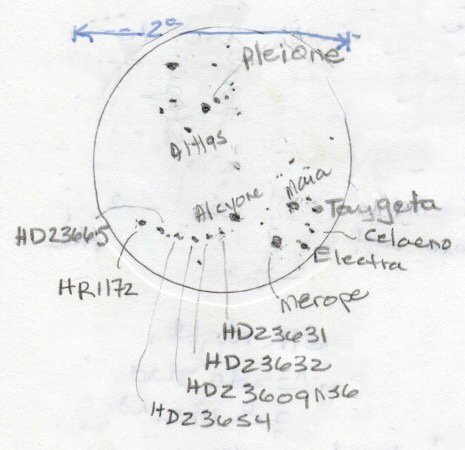 2°
Pleione
Atlas
Maia
Alcyone
Taygeta
HD23665
Celaeno
Electra
HR1172
Merope
HD23631
HD23632
HD23609
HD23654